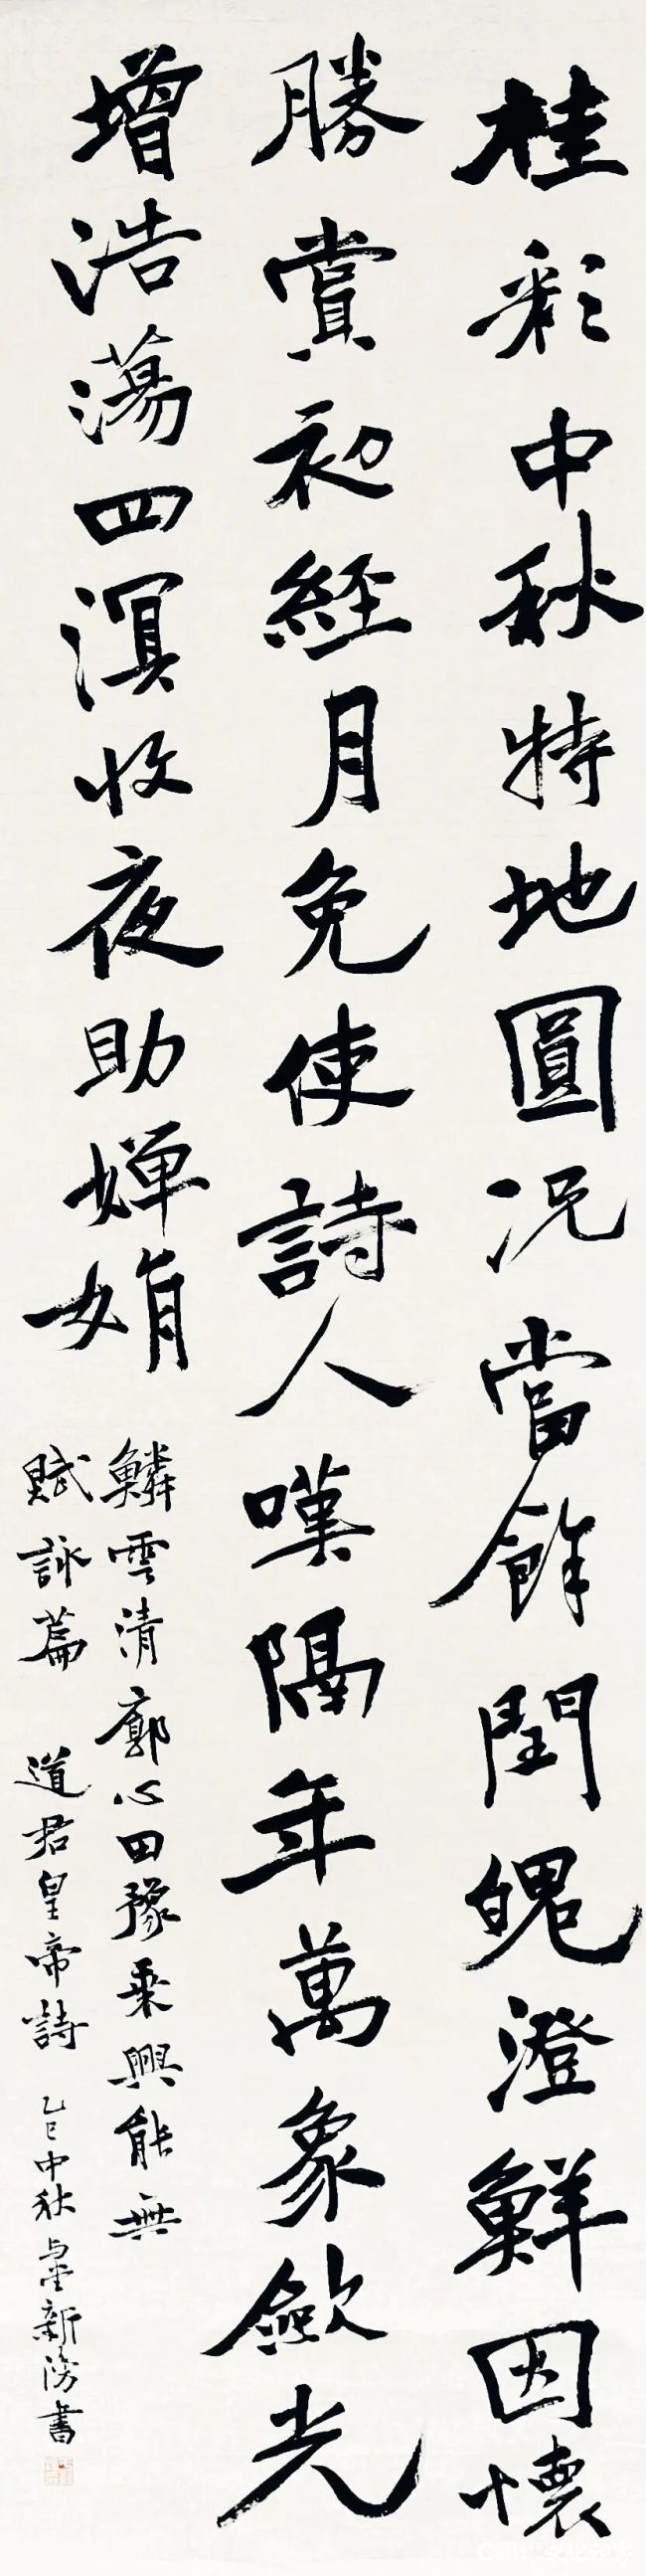 桂彩中秋特地圓況當餘閏魄澄鮮因懷
勝賞初經月免使詩人嘆隔年萬象斂光
增浩蕩四溟收夜助嬋娟
鱗雲清廓心田豫乘興能無
賦詠篇 道君皇帝詩 乙巳中秋 新 書